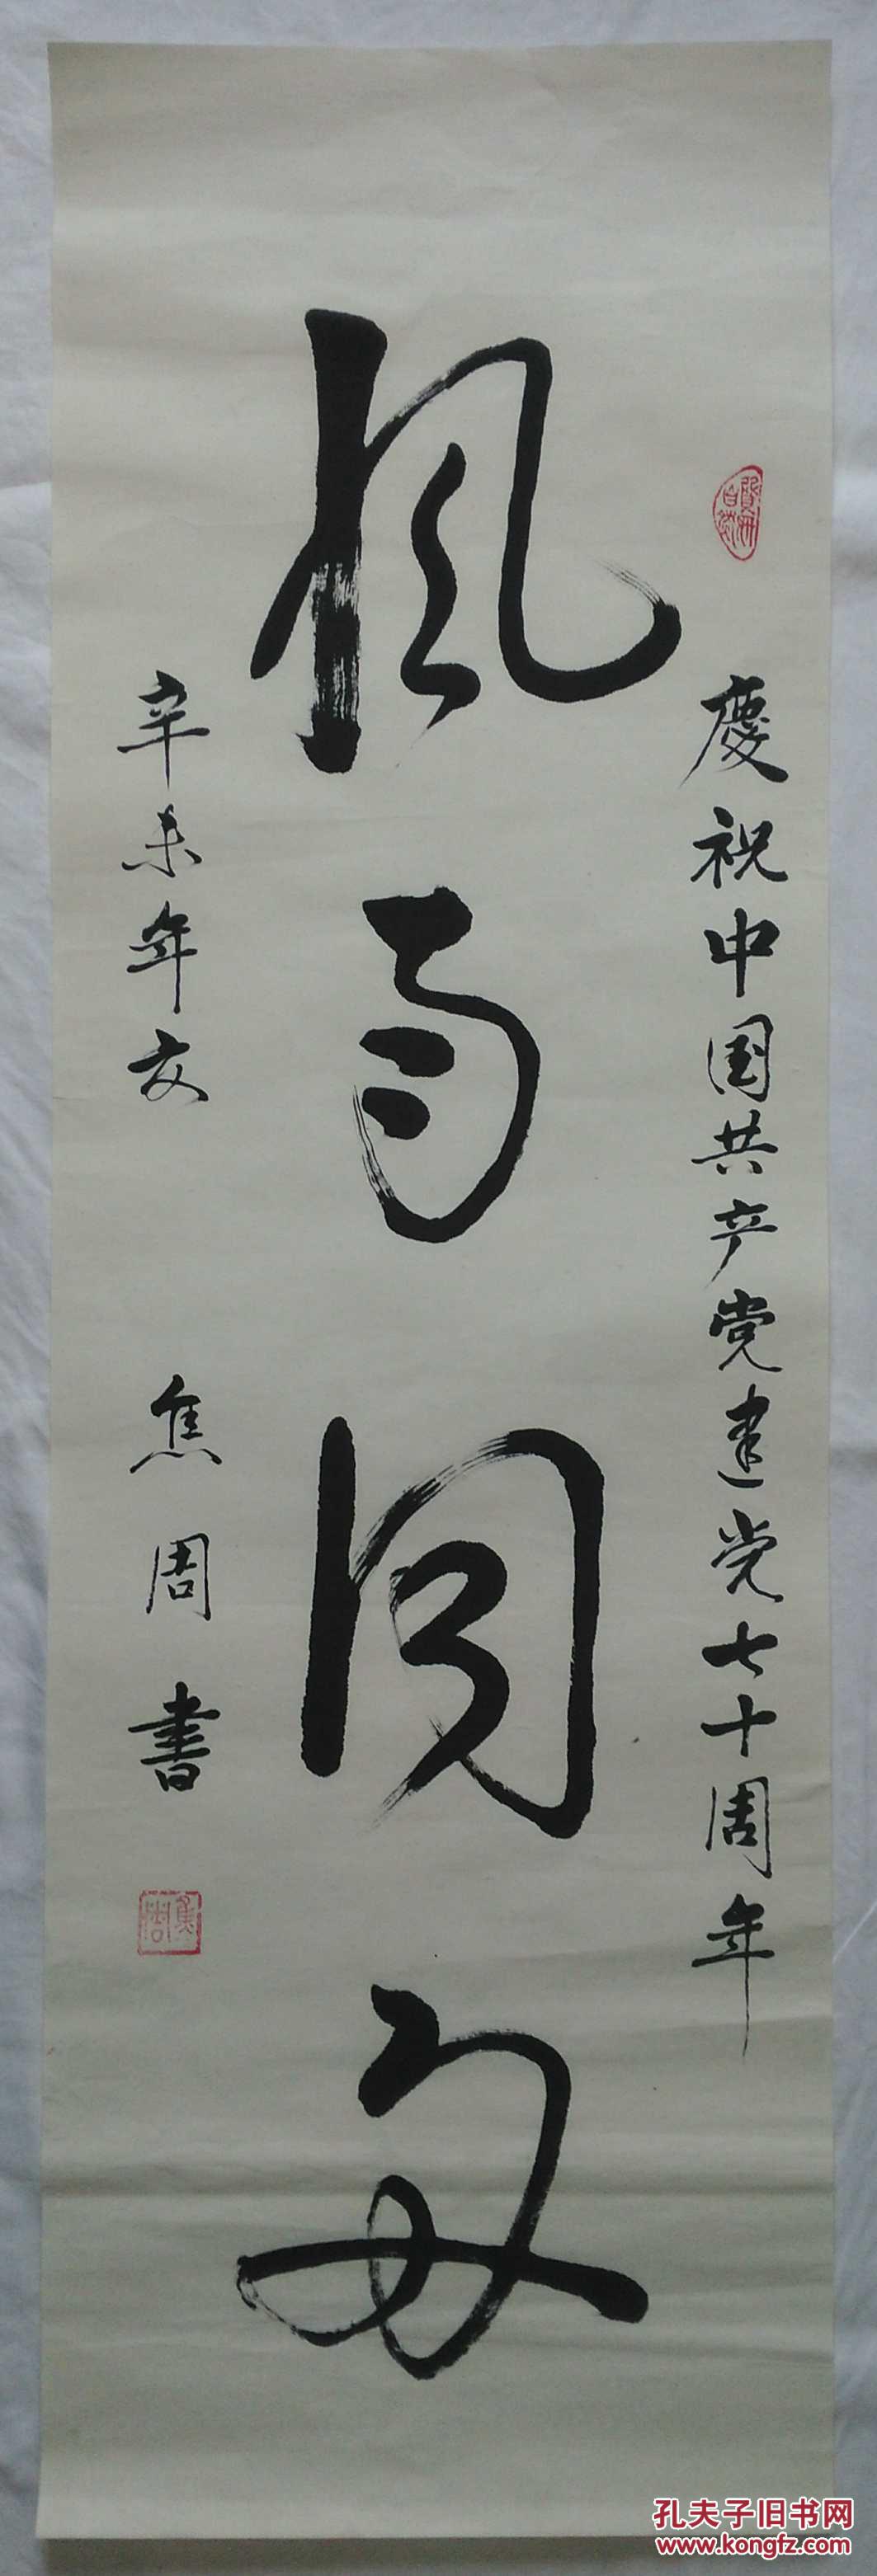 慶祝中国共产党建党七十周年
風雨同舟
辛未年夏
焦周書
焦周
孔夫子旧书网
www.kongfz.com